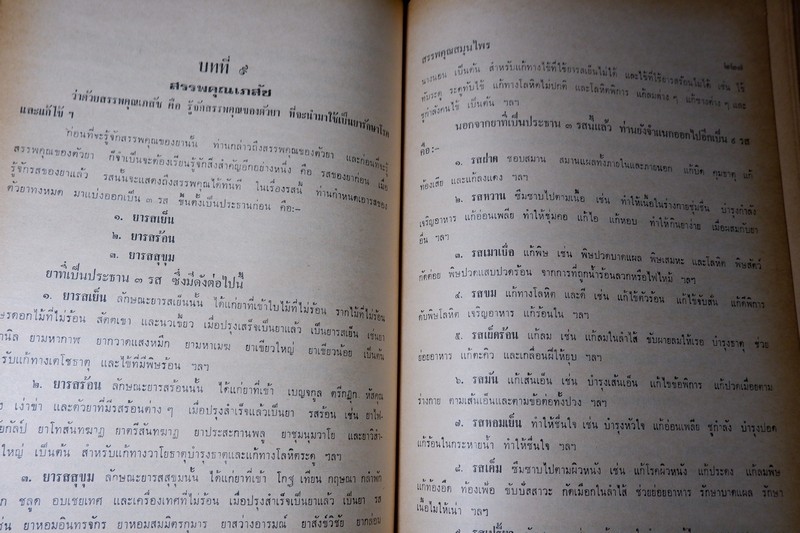 บทที่ ๕
สรรพคุณเภสัช
ว่าด้วยสรรพคุณเภสัช คือ รู้จักสรรพคุณของตัวยา ที่จะนำมาใช้เป็นยารักษาโรค
และแก้ไข้ ฯ
ก่อนที่จะรู้จักสรรพคุณของยานั้น ท่านกล่าวถึงสรรพคุณของตัวยา และก่อนที่จะรู้
สรรพคุณของตัวยา ก็จำเป็นจะต้องเรียนรู้จักถึงสำคัญอีกอย่างหนึ่ง คือ รสของยาก่อน เมื่อ
รู้จักรสของยาแล้ว รสนั้นจะแสดงถึงสรรพคุณได้ทันที ในเรื่องรสนี้ ท่านกำหนดเอารสของ
ตัวยาทั้งหมด มาแบ่งออกเป็น ๓ รส ขึ้นตั้งเป็นประธานก่อน คือ:–
๑. ยารสเย็น
๒. ยารสร้อน
๓. ยารสสุขุม
ยาที่เป็นประธาน ๓ รส ซึ่งมีดังต่อไปนี้
๑. ยารสเย็น ลักษณะยารสเย็นนั้น ได้แก่ยาที่เข้าใบไม้ที่ไม่ร้อน รากไม้ที่ไม่ร้อน
ดอกไม้ที่ไม่ร้อน สัตตเขา และนวเขี้ยว เมื่อปรุงเสร็จเป็นยาแล้ว เป็นยารสเย็น เช่นยา
ยามหากาฬ ยากวาดแสงหมึก ยามหาเมฆ ยาเขียวใหญ่ ยาเขียวน้อย เป็นต้น
รับแก้ทางเตโชธาตุ และไข้ที่มีพิษร้อน ฯลฯ
๒. ยารสร้อน ลักษณะยารสร้อนนั้น ได้แก่ยาที่เข้า เบญจกูล ตรีกฏุก หัสคุณ
เหง้าข่า และตัวยาที่มีรสร้อนต่าง ๆ เมื่อปรุงสำเร็จแล้วเป็นยา รสร้อน เช่น ยาไฟ-
ยาโทสันฑฆาฏ ยาตรีสันฑฆาฏ ยาประสะกานพลู ยาชุมนุมวาโย และยาวิสำ-
ใหญ่ เป็นต้น สำหรับแก้ทางวาโยธาตุบำรุงธาตุและแก้ทางโลหิตระดู ฯลฯ
๓. ยารสสุขุม ลักษณะยารสสุขุมนั้น ได้แก่ยาที่เข้า โกฐ เทียน กฤษณา กลำพัก
ชลูด อบเชยเทศ และเครื่องเทศที่ไม่ร้อน เมื่อปรุงสำเร็จเป็นยาแล้ว เป็นยา รส
เช่น ยาหอมอินทรจักร ยาหอมสมมิตรกุมาร ยาสว่างอารมณ์ ยาสังข์วิชัย ยากล่อม
สรรพคุณสมุนไพร
นางนอน เป็นต้น สำหรับแก้ทางไข้ที่ใช้ยารสเย็นไม่ได้ และใช้ที่ใช้ยารสร้อนไม่ได้ เช่น ไข้
ทับระดู ระดูทับไข้ แก้ทางโลหิตไม่ปกติ และโลหิตพิการ แก้ลมต่าง ๆ แก้ซางต่าง ๆ และ
ชูกำลังคนไข้ เป็นต้น ฯลฯ
นอกจากยาที่เป็นประธาน ๓ รสนี้แล้ว ท่านยังจำแนกออกไปอีกเป็น ๙ รส
คือ:–
๑. รสฝาด ชอบสมาน สมานแผลทั้งภายในและภายนอก แก้บิด คุมธาตุ แก้
ท้องเสีย และแก้ลงแดง ฯลฯ
๒. รสหวาน ซึมซาบไปตามเนื้อ เช่น ทำให้เนื้อในร่างกายชุ่มชื่น บำรุงกำลัง
เจริญอาหาร แก้อ่อนเพลีย ทำให้ชุ่มคอ แก้ไอ แก้หอบ ทำให้กินยาง่าย เมื่อผสมกับยา
อื่น ฯลฯ
๓. รสเมาเบื่อ แก้พิษ เช่น พิษปวดบาดแผล พิษเสมหะ และโลหิต พิษสัตว์
กัดต่อย พิษปวดแสบปวดร้อน จากการที่ถูกน้ำร้อนลวกหรือไฟไหม้ ฯลฯ
๔. รสขม แก้ทางโลหิต และดี เช่น แก้ไข้ตัวร้อน แก้ไข้จับสั่น แก้ดีพิการ
ดับพิษโลหิต เจริญอาหาร แก้ร้อนใน ฯลฯ
๕. รสเผ็ดร้อน แก้ลม เช่น แก้ลมในลำไส้ ขับผายลมให้เรอ บำรุงธาตุ ช่วย
ย่อยอาหาร แก้ตะคิว และเกลื่อนฝีให้ยุบ ฯลฯ
๖. รสมัน แก้เส้นเอ็น เช่น บำรุงเส้นเอ็น แก้ไขข้อพิการ แก้ปวดเมื่อยตาม
ร่างกาย ตามเส้นเอ็นและตามข้อต่อทั้งปวง ฯลฯ
๗. รสหอมเย็น ทำให้ชื่นใจ เช่น บำรุงหัวใจ แก้อ่อนเพลีย ชูกำลัง บำรุงปอด
แก้ร้อนในกระหายน้ำ ทำให้ชื่นใจ ฯลฯ
๘. รสเค็ม ซึมซาบไปตามผิวหนัง เช่น แก้โรคผิวหนัง แก้ประดง แก้ลมพิษ
แก้ท้องอืด ท้องเฟ้อ ขับปัสสาวะ กัดเมือกในลำไส้ ช่วยย่อยอาหาร รักษาบาดแผล รักษา
เนื้อไม่ให้เน่า ฯลฯ
๙. รสเปรี้ยว